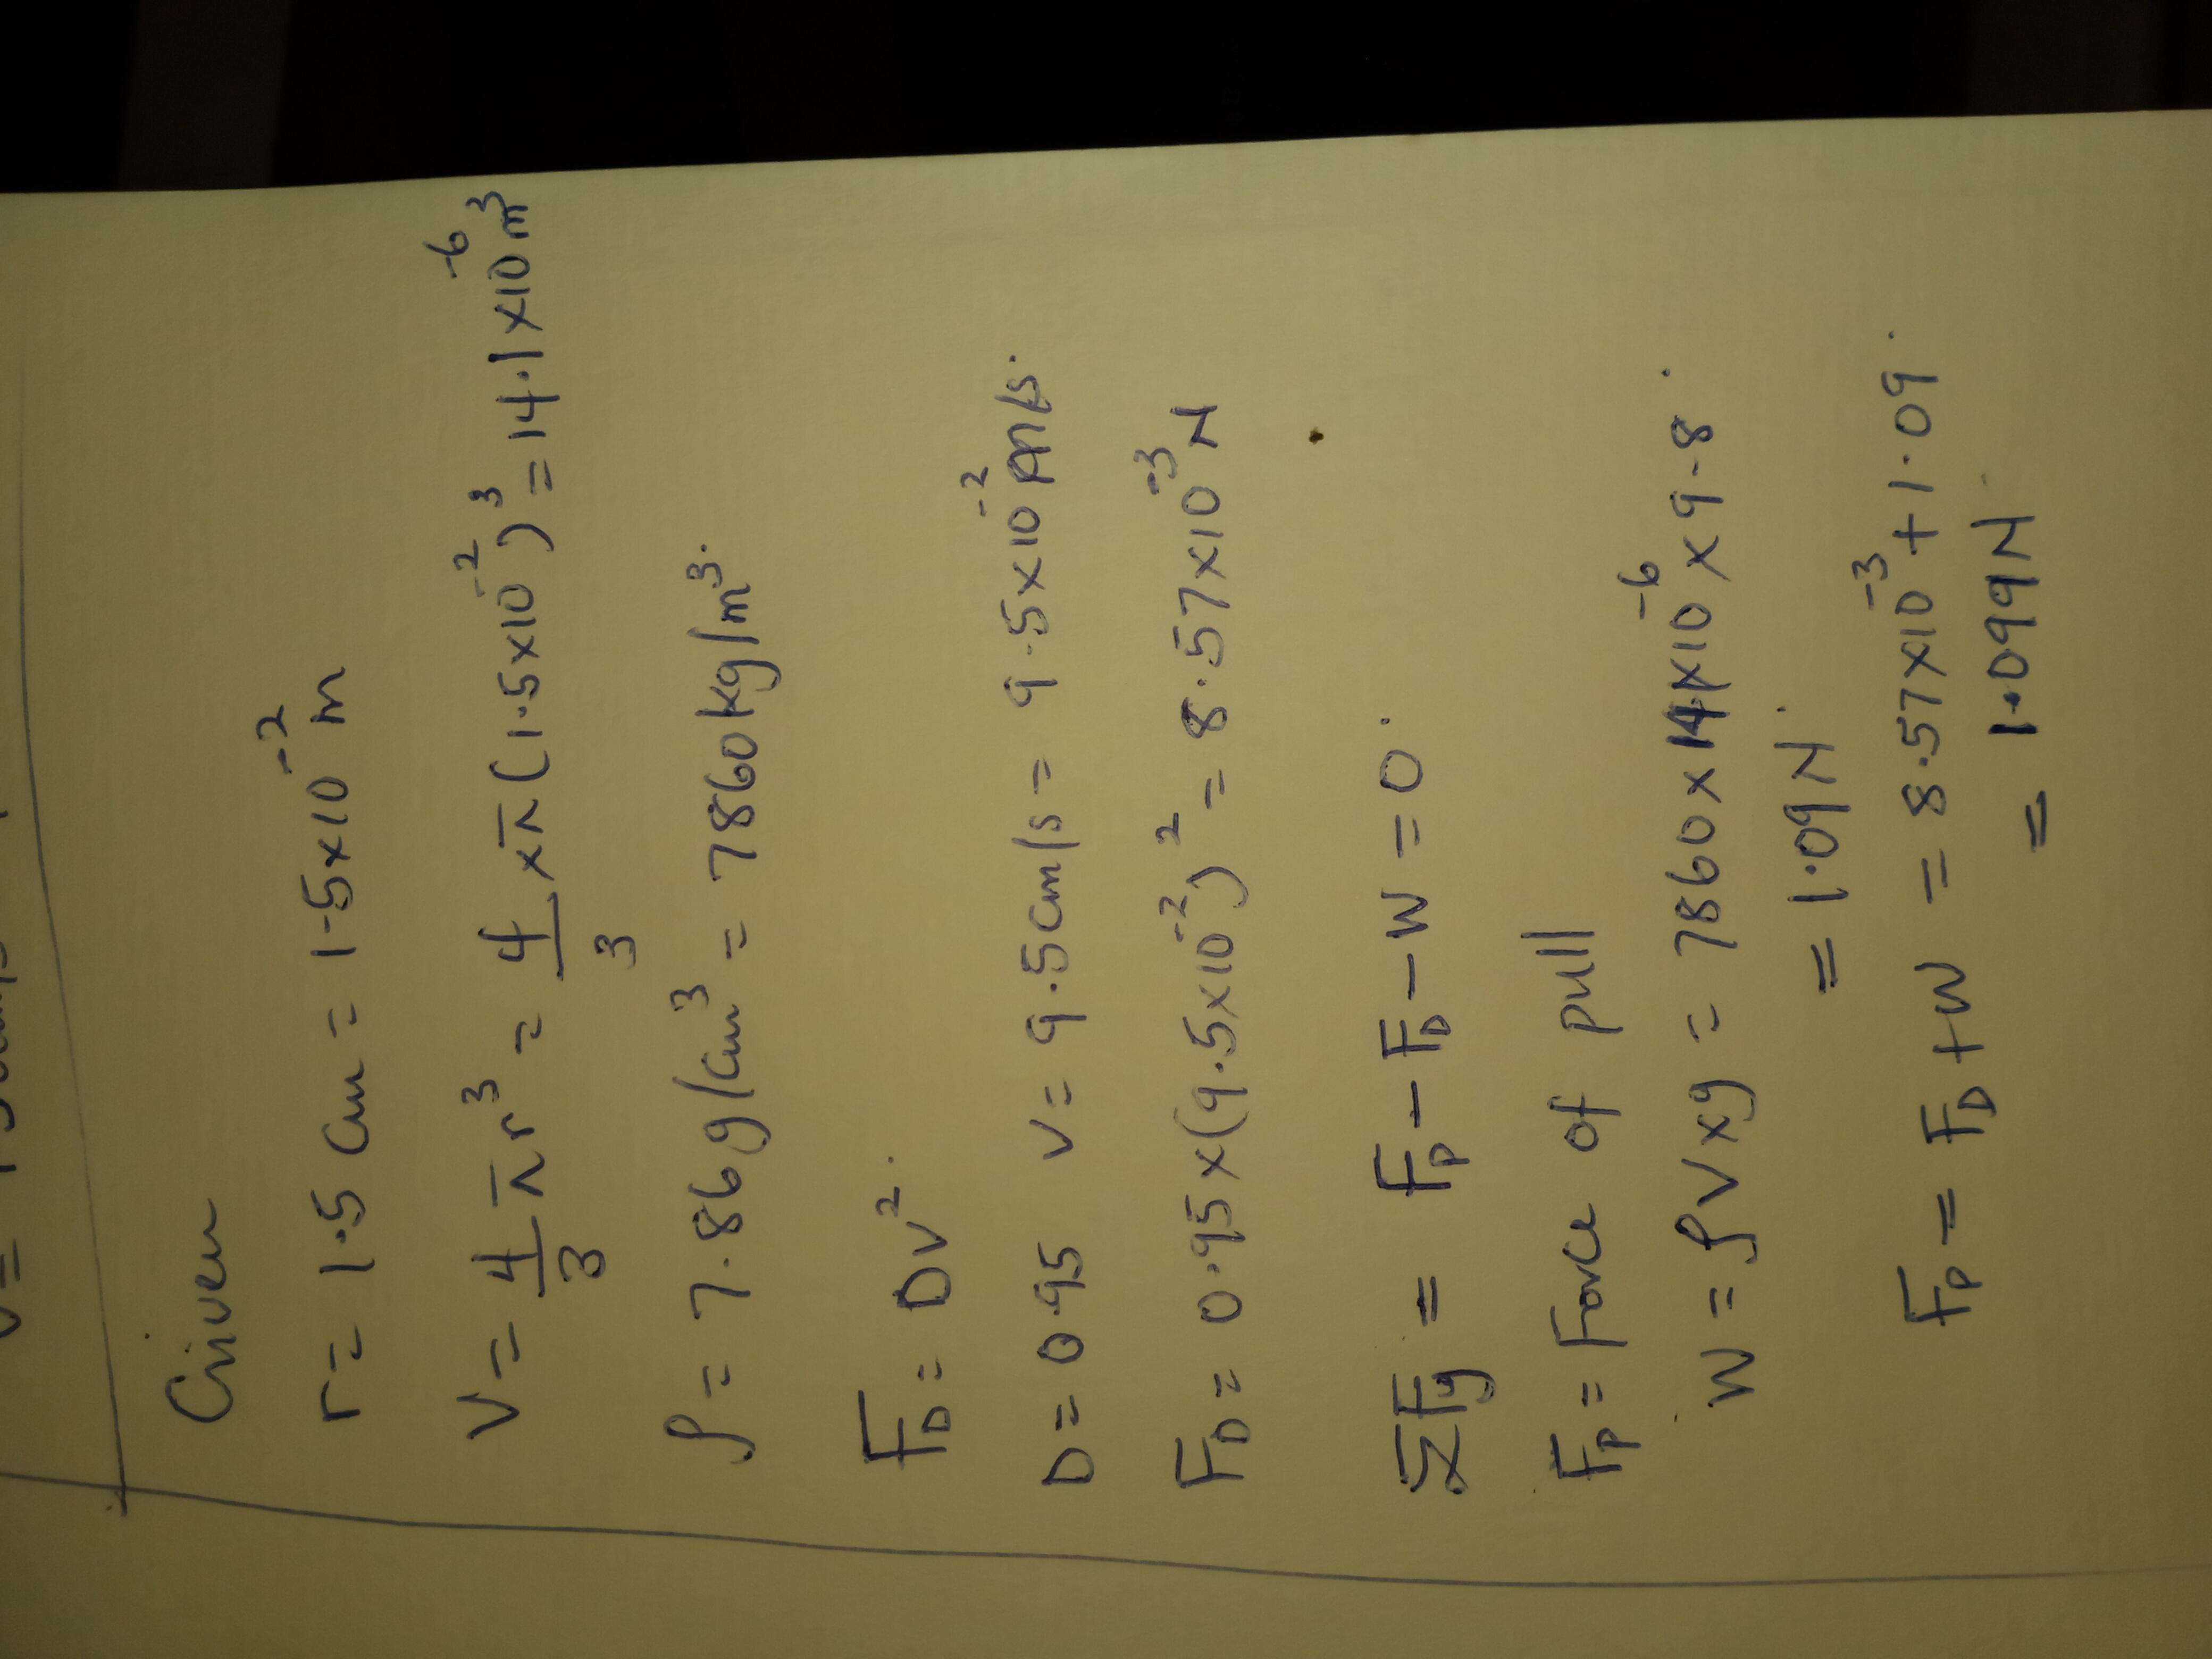 Given
r = 1.5 cm = 1.5x10⁻² m
V = 4/3 πr³ = 4/3 xπ(1.5x10⁻²)³ = 14.1x10⁻⁶ m³
ρ = 7.86 g/cm³ = 7860 kg/m³.
F_D = Dv².
D = 0.95 v = 9.5 cm/s = 9.5x10⁻² m/s.
F_D = 0.95x(9.5x10⁻²)² = 8.57x10⁻³ N
ΣFy = F_P - F_D - W = 0.
F_P = Force of pull
W = ρVxg = 7860x14.1x10⁻⁶x9.8.
= 1.09N.
F_P = F_D+W = 8.57x10⁻³+1.09.
= 1.099N